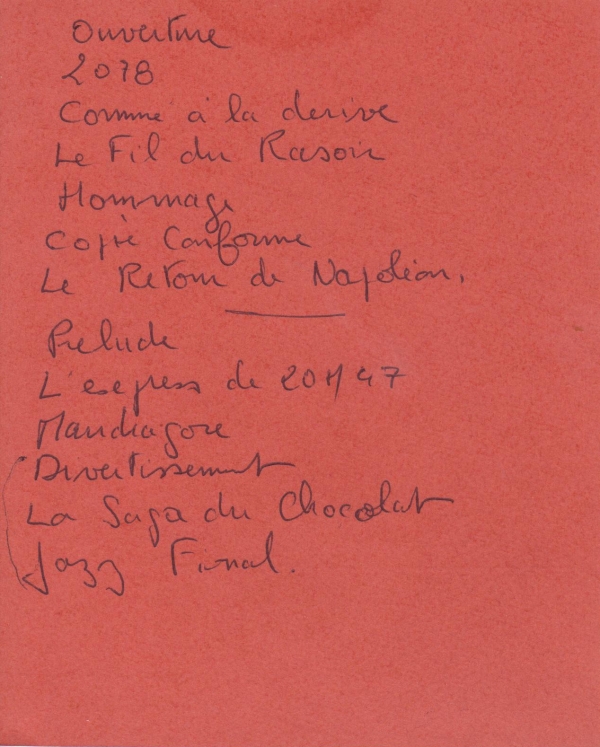 Ouverture
2078
Comme à la derive
Le Fil du Rasoir
Hommage
Copie Conforme
Le Retour de Napoléon.
Prelude
L'express de 20H47
Mandragore
Divertissement
La Saga du Chocolat
Jazz Final.